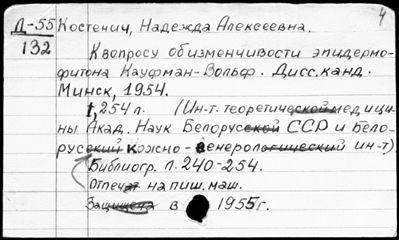 4
Д-55 Костенич, Надежда Алексеевна.
132
К вопросу об изменчивости эпидермо-
фитона Кауфман-Вольф. Дисс. канд.
Минск, 1954.
1, 254 л. (Ин-т. теоретической медици-
ны Акад. Наук Белорусской ССР и Бело-
русский кожно-венерологический ин-т)
Библиогр. л. 240-254.
Отпечат на пиш. маш.
Защищена в 1955г.